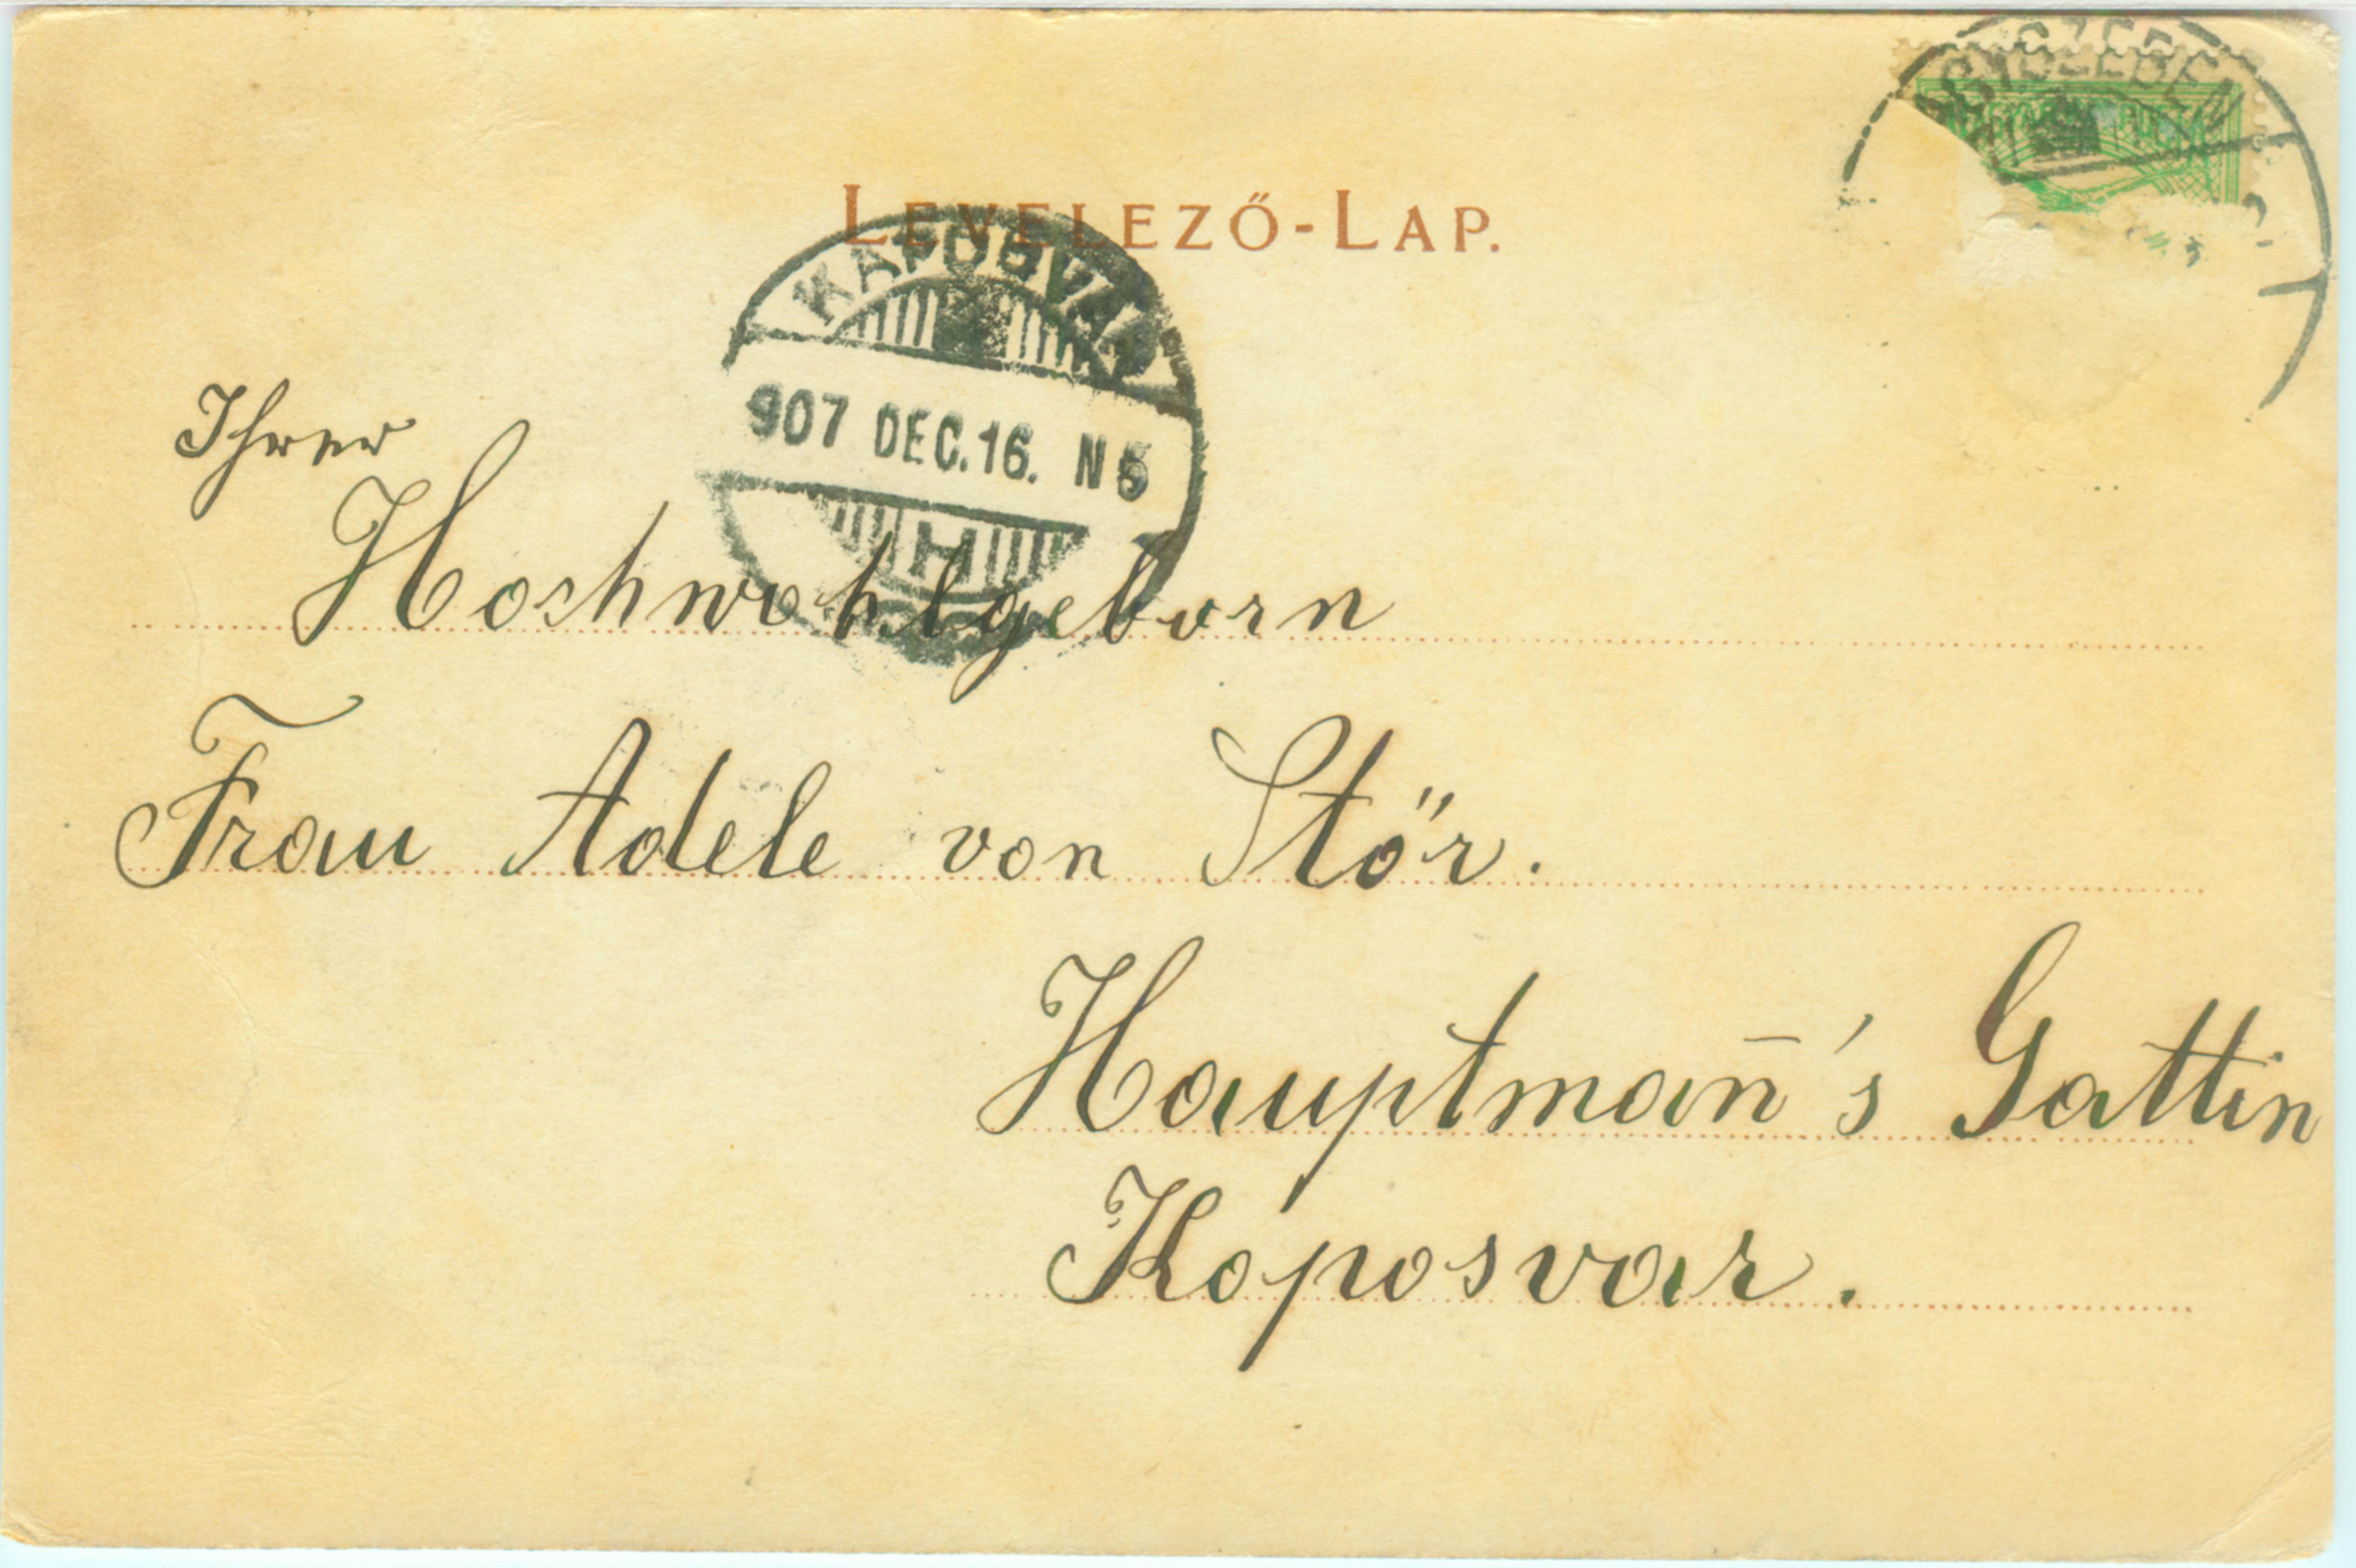 LEVELEZŐ-LAP.
KAPOSVÁR
907 DEC. 16. N 5
H
Ihrer
Hochwohlgeborn
Frau Adele von Stör.
Hauptman̄'s Gattin
Koposvar.